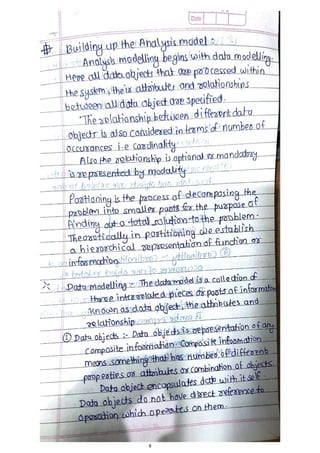 Date
# Building up the Analysis model :
Analysis modelling begins with data modelling.
Here all data objects that are processed within
the system, their attribute, and relationships
between all data object are specified.
The relationship between different data
object is also considered in terms of number of
occurances i.e cardinality
Also the relationship is optional or mandatory
is represented by modality
Partioning is the process of decomposing the
problem into smaller parts for the purpose of
finding out a total solution to the problem.
Theoretically in partitioning we establish
a hierarchical representation of function or
information
Data modelling :- The data model is a collection of
three interrelated pieces or parts of information
known as data object, the attributes and
relationship
① Data objects :- Data objects is representation of any
composite information. Composite information
means something that has number of different
properties or attributes or combination of objects.
Data object encapsulates data with it self
Data objects do not have direct reference to
operation which operates on them.
8